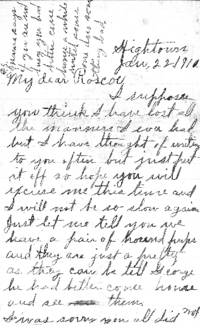 Hightown
Jan, 22-1910
My dear Roscoy
I suppose
you think I have lost all
the manners I ever had
but I have thought of writing
to you often but just put
it off so hope you will
excuse me this time and
I will not be so slow again
Just let me tell you we
have a pair of hound pups
and they are just as pretty
as they can be tell George
he had better come home
and see them.
I was sorry you all did not